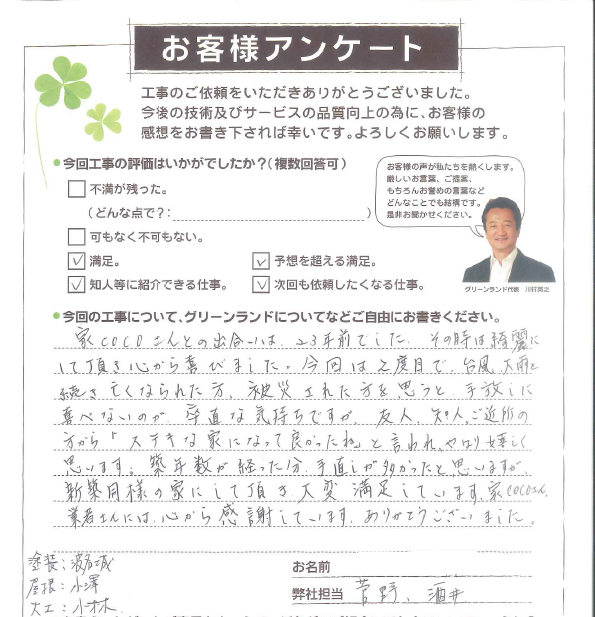 お客様アンケート
工事のご依頼をいただきありがとうございました。
今後の技術及びサービスの品質向上の為に、お客様の
感想をお書き下されば幸いです。よろしくお願いします。
今回工事の評価はいかがでしたか？(複数回答可)
不満が残った。
(どんな点で？: )
可もなく不可もない。
満足。
予想を超える満足。
知人等に紹介できる仕事。
次回も依頼したくなる仕事。
お客様の声が私たちを熱くします。
厳しいお言葉、ご提案、
もちろんお誉めの言葉など
どんなことでも結構です。
是非お聞かせください。
グリーンランド代表 川村真之
今回の工事について、グリーンランドについてなどご自由にお書きください。
家COCOさんとの出合いは、23年前でした。その時は綺麗に
して頂き心から喜びました。今回は2度目で、台風、大雨と
続き亡くなられた方、被災された方を思うと手放しに
喜べないのが、率直な気持ちですが、友人、知人、ご近所の
方から「ステキな家になって良かったね」と言われ、やはり嬉しく
思います。築年数が経った分、手直しが多かったと思いますが、
新築同様の家にして頂き大変満足しています。家COCOさん、
業者さんには、心から感謝しています。ありがとうございました。
塗装:波名城
屋根:小澤
大工:小林
お名前
弊社担当 菅野、酒井